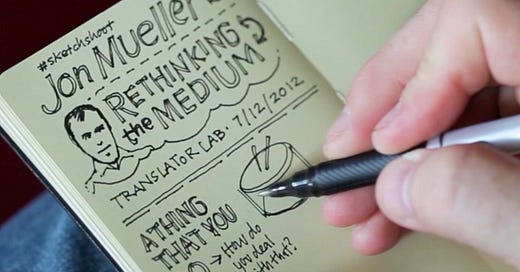 #sketchshoot
Jon Mueller
RETHINKING
the MEDIUM
TRANSLATOR LAB • 7/12/2012
A THING
THAT YOU
→ How do
you deal
with that?